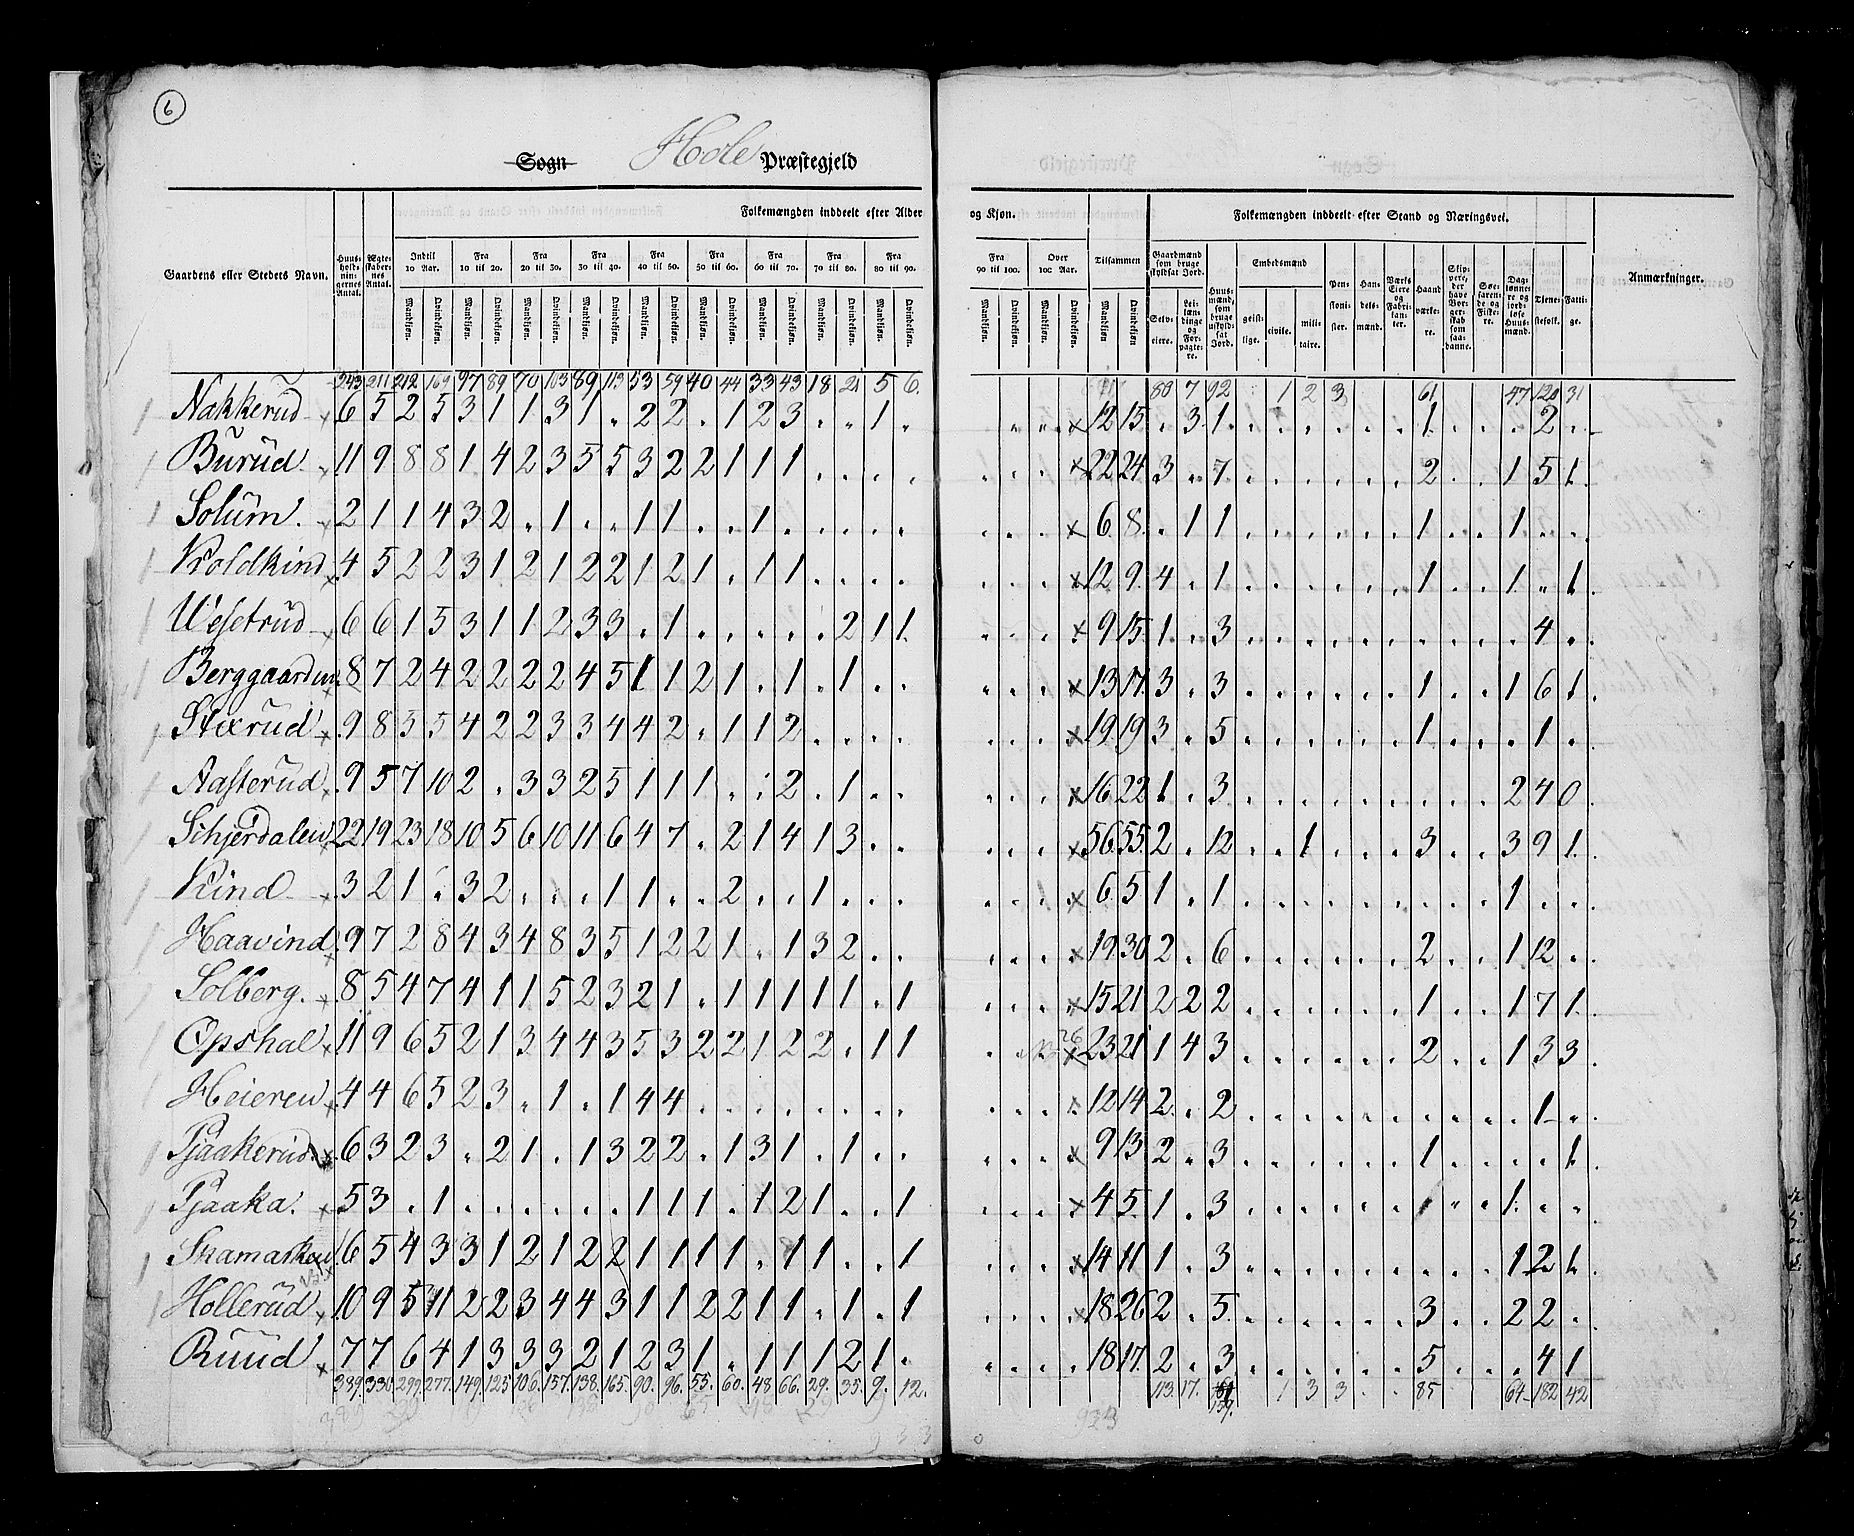 6
Sogn Hole Præstegjeld
Gaardens eller Stedets Navn.
Huusholdningernes Antal.
Ægteskabernes Antal.
Folkemængden inddeelt efter Alder og Kjøn.
Indtil 10 Aar. Fra 10 til 20. Fra 20 til 30. Fra 30 til 40. Fra 40 til 50. Fra 50 til 60. Fra 60 til 70. Fra 70 til 80. Fra 80 til 90. Fra 90 til 100. Over 100 Aar. Tilsammen
Mandkjøn. Qvindekjøn.
Folkemængden inddeelt efter Stand og Næringsvei.
Gaardmænd som bruge skyldsat Jord.
Selveiere. Leilændinge og Forpagtere.
Huusmænd, som bruge uskyldsat Jord.
Embedsmænd
geistlige. civile. militaire.
Pensionister.
Handelsmænd.
Værks Eiere og Fabrikanter.
Haandværkere.
Skippere, der have Borgerskab som saadanne.
Søefarende og Fiskere.
Daglønnere og jordløse Huusmænd.
Tjenestefolk.
Fattige.
Anmærkninger.
243 211 212 169 97 89 70 103 89 113 53 59 40 44 33 43 18 21 5 6. 80 7 92 1 2 3 61 47 120 31
Nakkerud 6 5 2 5 3 1 1 3 1 . 2 2 . 1 2 3 . . 1 . . . . . 12 15 . 3 1 . . . . . . 1 . . . 2 .
Burud. 11 9 8 8 1 4 2 3 5 5 3 2 2 1 1 1 . . . . . . . 22 24 3 . 7 . . . . . . 2 . . 1 5 1.
Solum. 2 1 1 4 3 2 . 1 . . 1 1 . . 1 . . . . . . . . . 6 8 . 1 1 . . . . . . 1 . . 1 . .
Kroldkind 4 5 2 2 3 1 2 1 2 2 1 2 1 . 1 1 . . . . . . . . 12 9. 4 . 1 . . . . . . 1 . . 1 . 1
Wesetrud 6 6 1 5 3 1 1 2 3 3 . 1 . . . . . 2 1 1 . . . . 9 15 1 . 3 . . . . . . . . . . 4 .
Berggaarden. 8 7 2 4 2 2 2 2 4 5 1 1 2 1 . 1 . 1 . . . . . . 13 17. 3 . 3 . . . . . . 1 . . 1 6 1.
Stixrud 9 8 5 5 4 2 2 3 3 4 4 2 . 1 1 2 . . . . . . . . 19 19 3 . 5 . . . . . . 1 . . . 1 .
Aasterud 9 5 7 10 2 . 3 3 2 5 1 1 1 . . 2 . 1 . . . . . . 16 22 1. . 3 . . . . . . . . . 2 4 0
Schjerdalen 22 19 23 18 10 5 6 10 11 6 4 7 . 2 1 4 1 3 . . . . . . 56 55. 2 . 12 . . 1 . . . 3 . . 3 9 1.
Kind 3 2 1 . 3 2 . . . 1 1 . . 2 . . 1 . . . . . . 6 5 1 . 1 . . . . . . . . . 1 . .
Haavind 9 7 2 8 4 3 4 8 3 5 1 2 2 1 . 1 3 2 . . . . . . 19 30 2 . 6 . . . . . . 2 . . 1 12 .
Solberg. 8 5 4 7 4 1 1 5 2 3 2 1 . 1 1 1 1 1 . 1 . . . . 15 21 2 2 2 . . . . . . 1 . . 1 7 1.
Opshal 11 9 6 5 2 1 3 4 4 3 5 3 2 2 1 2 2 . 1 1 23 21 1 4 3 . . . . . . 2 . . 1 3 3
Heieren 4 4 6 5 2 3 . 1 . 1 4 4 . . . . . . . . . . . . 12 14 2. . 2 . . . . . . . . . . 1 .
Pjaakerud. 6 3 2 3 . 2 1 . 1 3 2 2 . 1 3 1 . 1 . . . . . . 9 13 2 . 3 . . . . . . 1 . . . . 1.
Pjaaka. 5 3 . 1 . . . . . . 1 1 1 . 1 2 1 . . 1 . . . . 4 5. 1 . 3 . . . . . . 1 . . 1 . .
Snamarken 6 5 4 3 3 1 2 1 2 2 1 1 1 1 . 1 1 . . 1 . . . . 14 11 1 . 3 . . . . . . . . . 1 2 1.
Hollerud 10 9 5 11 2 2 3 4 4 3 1 1 2 2 1 1 . 1 . 1 . . . . 18 26 2 . 5 . . . . . . 3 . . 2 2 .
Ruud 7 7 6 4 1 3 3 3 2 1 2 3 1 . 1 1 1 2 1 . . . . . 18 17. 2 . 3 . . . . . . 5 . . . 4 1
389. 330 299. 277. 149. 125 106. 157. 138. 165. 90. 96. 55. 60. 48 66. 29. 35. 9. 12. 113. 17. 159. 1 3 3 . . 85 64 182 42
923